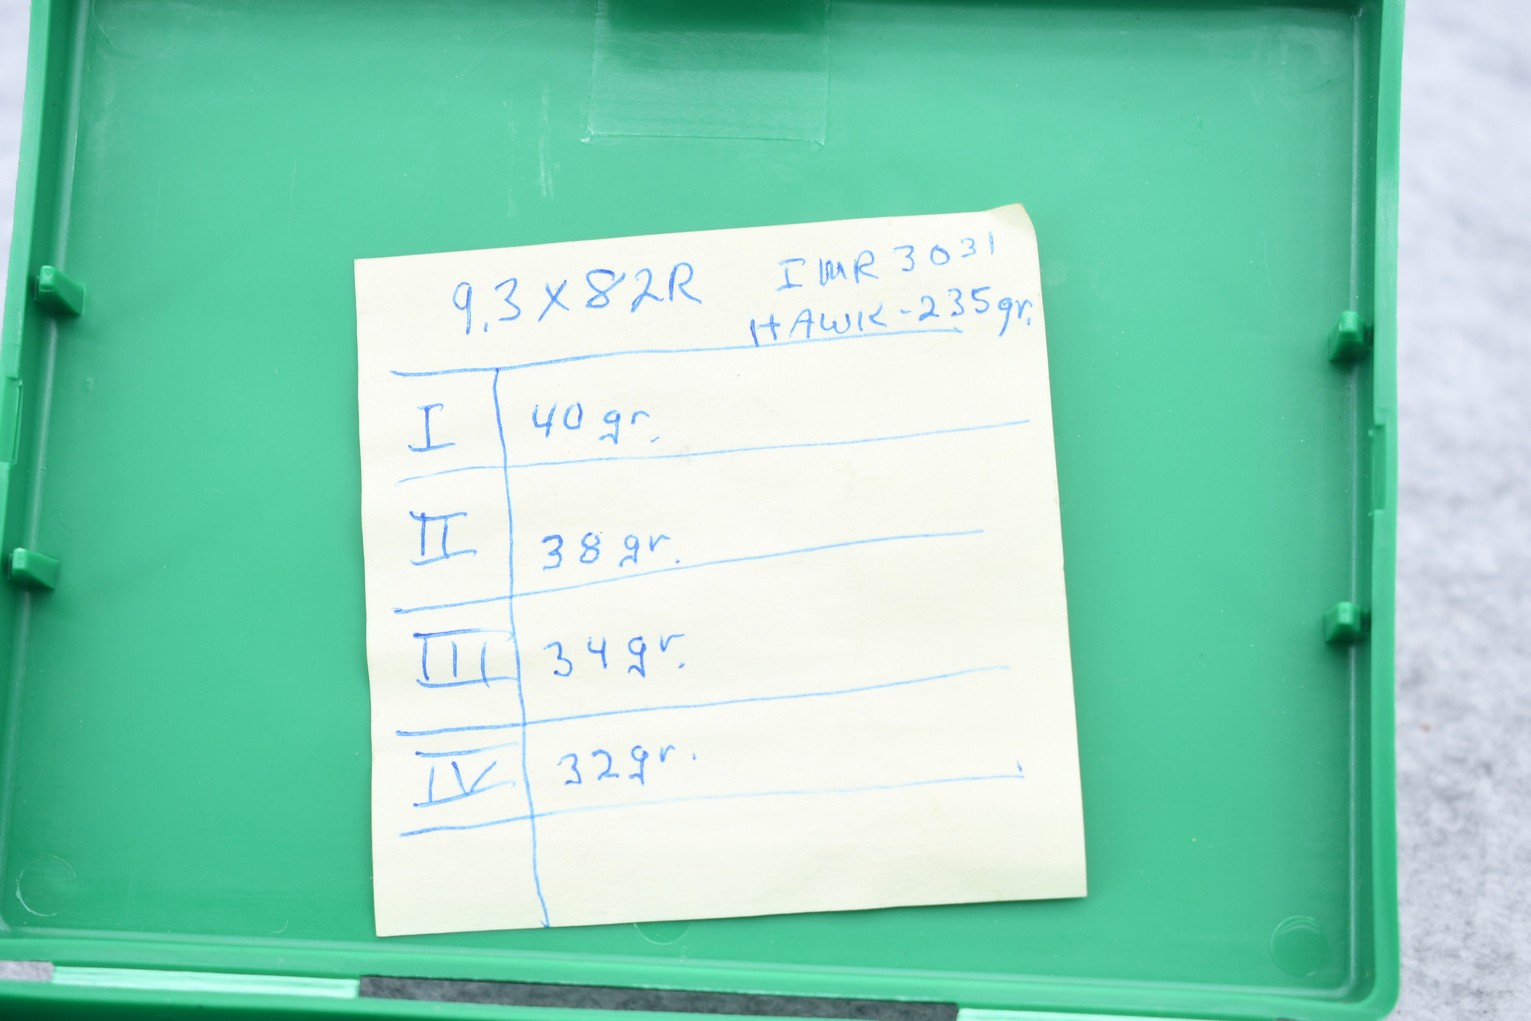 9.3 X 82R IMR 3031
HAWK - 235gr.
I 40 gr.
II 38 gr.
III 34 gr.
IV 32 gr.